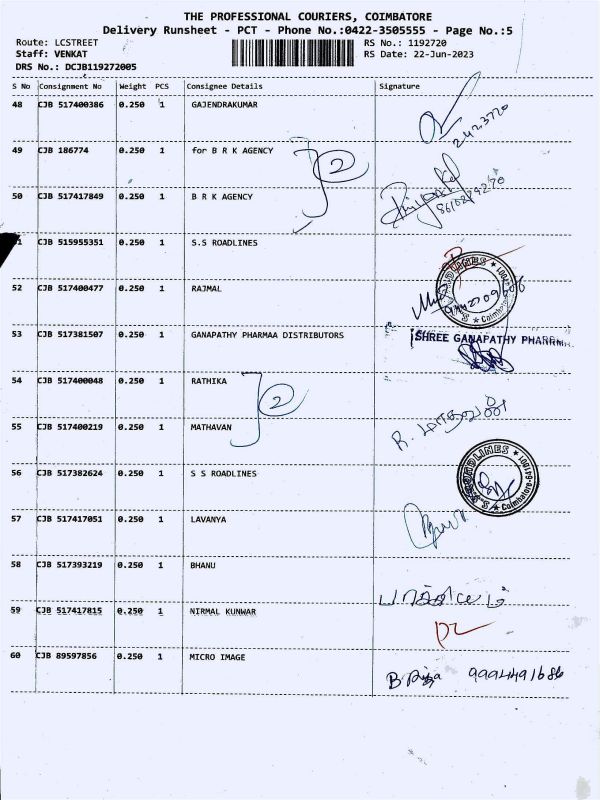 THE PROFESSIONAL COURIERS, COIMBATORE
Delivery Runsheet - PCT - Phone No.:0422-3505555 - Page No.:5
Route: LCSTREET
RS No.: 1192720
Staff: VENKAT
RS Date: 22-Jun-2023
DRS No.: DCJB119272005
S No Consignment No Weight PCS Consignee Details Signature
48 CJB 517400386 0.250 1 GAJENDRAKUMAR
2423720
49 CJB 186774 0.250 1 for B R K AGENCY
2
50 CJB 517417849 0.250 1 B R K AGENCY
CJB 515955351 0.250 1 S.S ROADLINES
52 CJB 517400477 0.250 1 RAJMAL
53 CJB 517381507 0.250 1 GANAPATHY PHARMAA DISTRIBUTORS
SHREE GANAPATHY PHARMA
54 CJB 517400048 0.250 1 RATHIKA
2
55 CJB 517400219 0.250 1 MATHAVAN
R. மாதவன்
56 CJB 517382624 0.250 1 S S ROADLINES
S.S. ROADLINES Coimbatore-641001
57 CJB 517417051 0.250 1 LAVANYA
58 CJB 517393219 0.250 1 BHANU
59 CJB 517417815 0.250 1 NIRMAL KUNWAR
60 CJB 89597856 0.250 1 MICRO IMAGE
B 9994491686